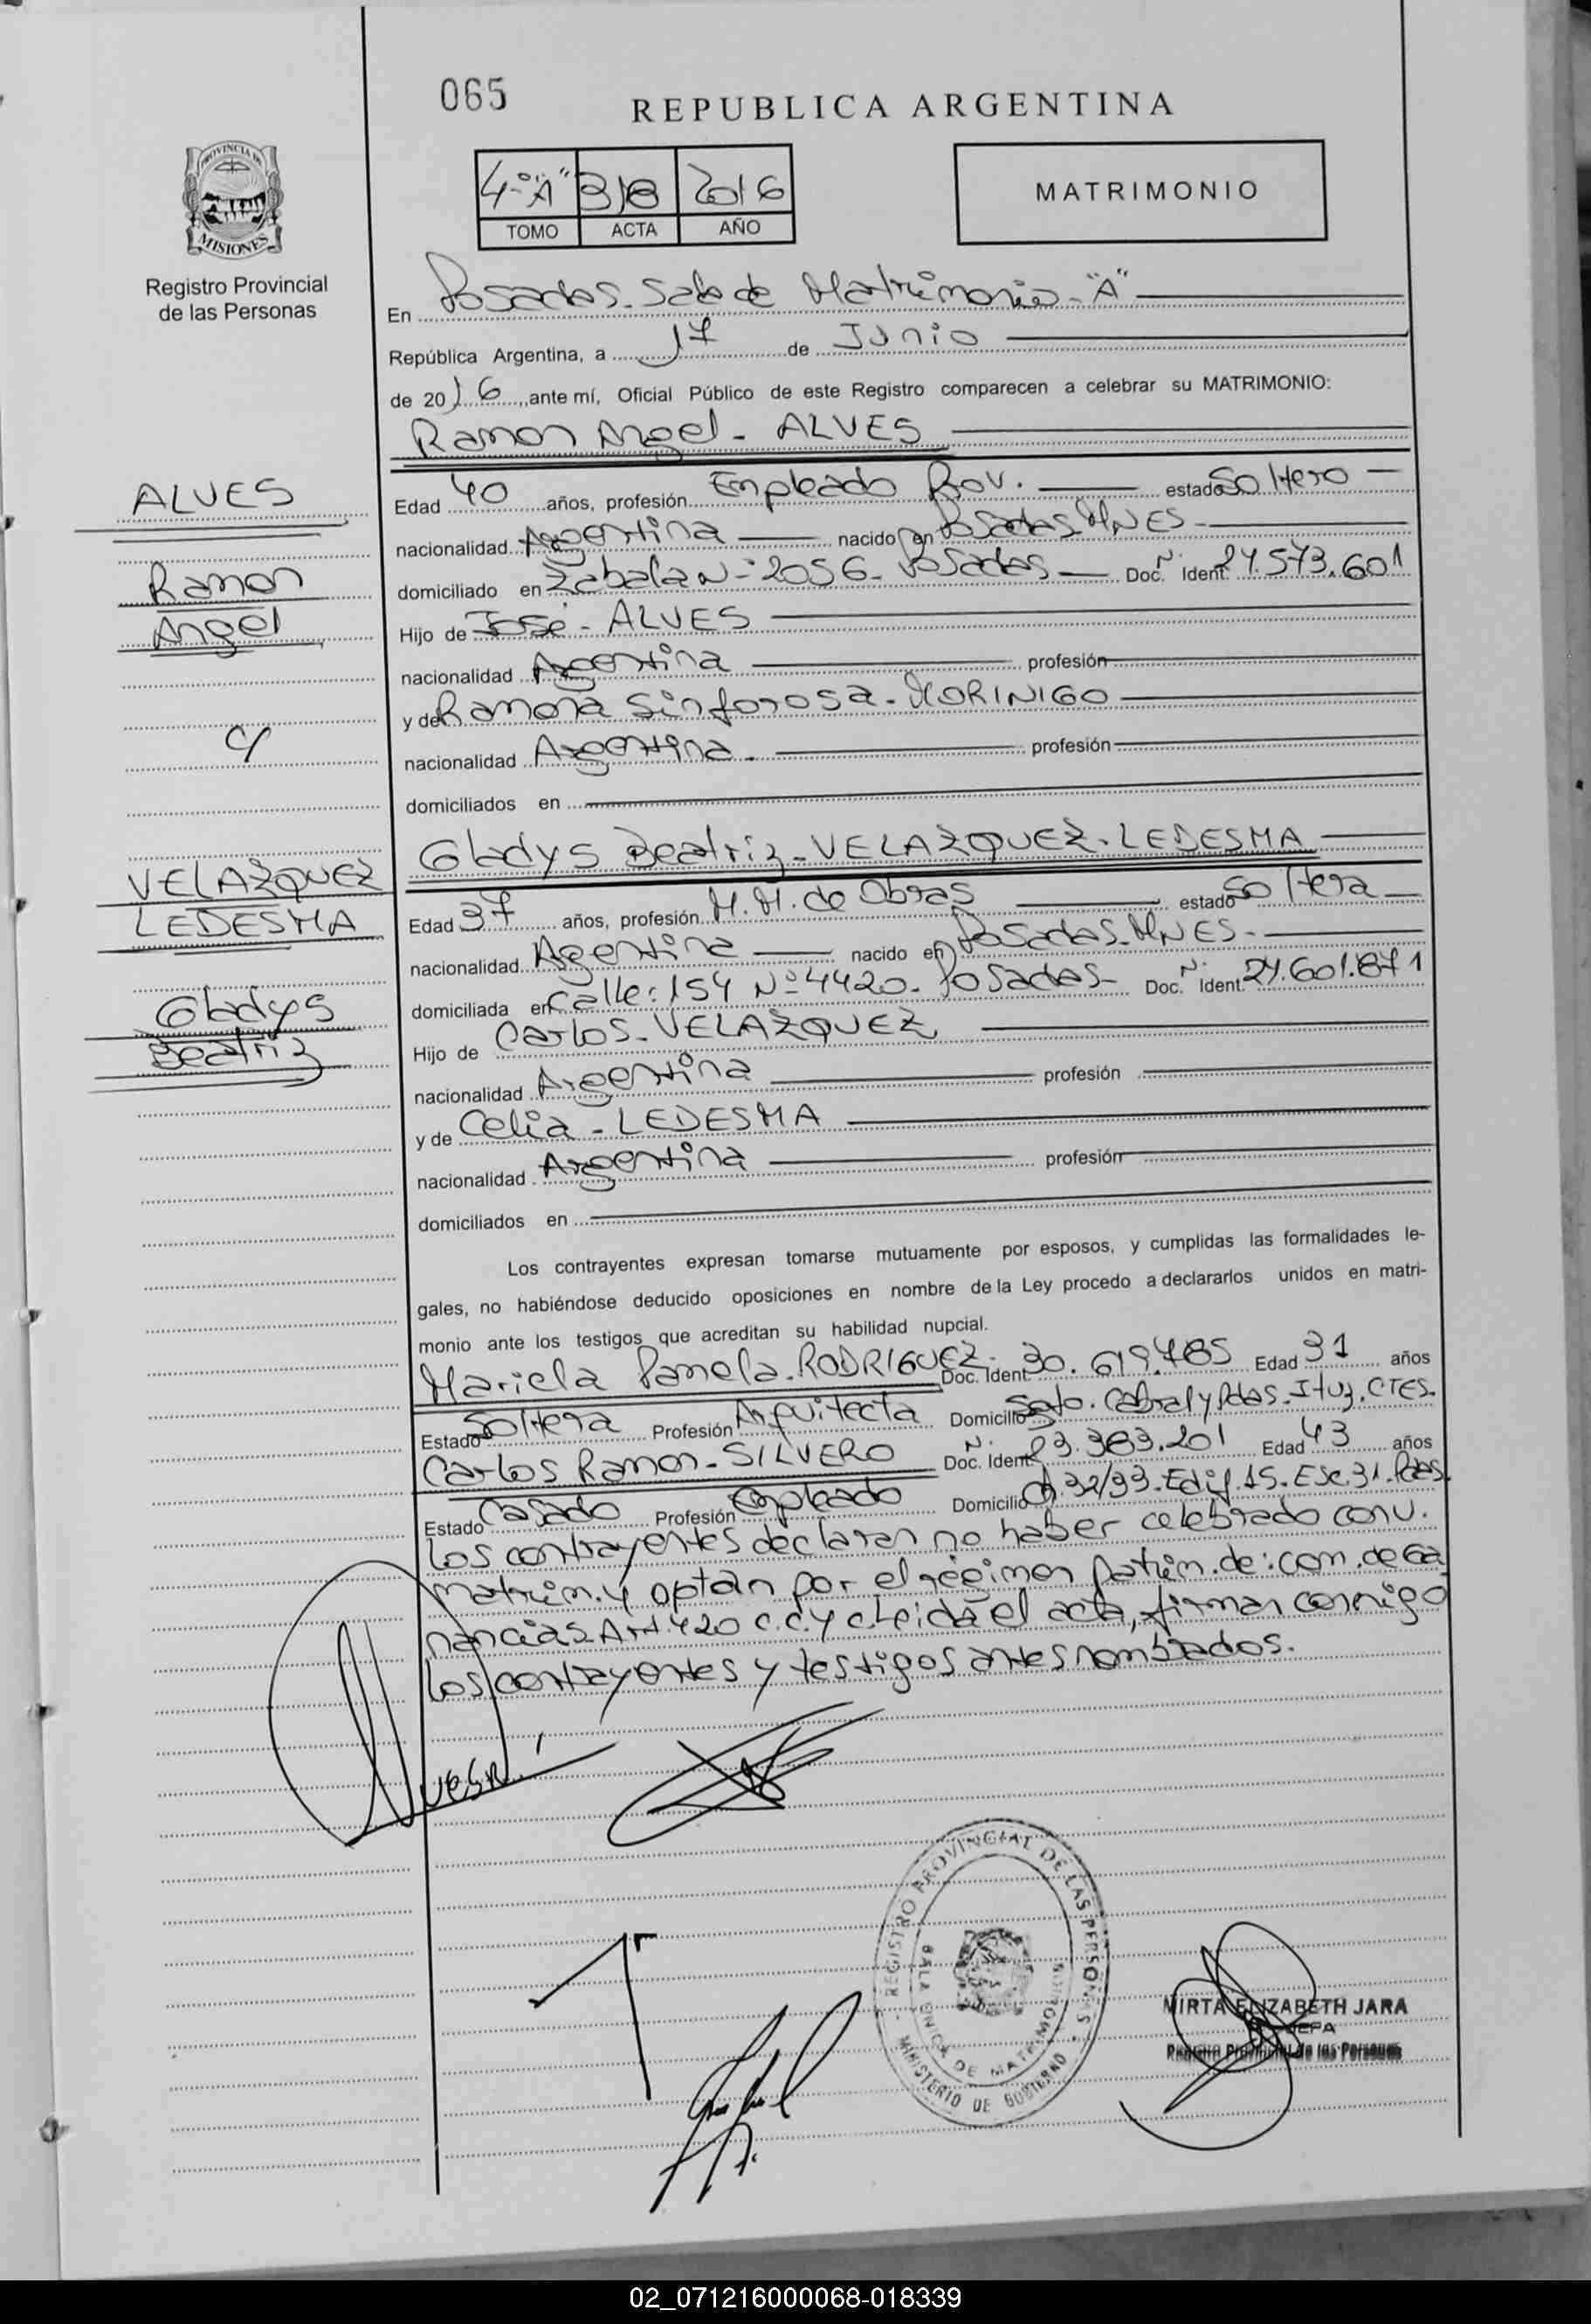 065
REPUBLICA ARGENTINA
PROVINCIA DE
MISIONES
Registro Provincial
de las Personas
4-°"A" 318 2016
TOMO ACTA AÑO
MATRIMONIO
En Posadas-Sala de Matrimonio-"A"
República Argentina, a 17 de Junio
de 2016, ante mí, Oficial Público de este Registro comparecen a celebrar su MATRIMONIO:
Ramon Angel - ALVES
ALVES
Ramon
Angel
c/
VELAZQUEZ
LEDESMA
Gladys
Beatriz
Edad 40 años, profesión Empleado Prov. estado Soltero
nacionalidad Argentina nacido en Posadas-MNES-
domiciliado en Zabala N-° 2056- Posadas Doc. N. Ident. 24.573.601
Hijo de José - ALVES
nacionalidad Argentina profesión
y de Ramona Sinforosa - MORINIGO
nacionalidad Argentina - profesión
domiciliados en
Gladys Beatriz - VELAZQUEZ - LEDESMA
Edad 37 años, profesión M.M. de Obras estado Soltera
nacionalidad Argentina nacido en Posadas-MNES-
domiciliada en Calle: 154 Nº 4420- Posadas- Doc. N. Ident.
Hijo de Carlos - VELAZQUEZ
nacionalidad Argentina profesión
y de Celia - LEDESMA
nacionalidad Argentina profesión
domiciliados en
Los contrayentes expresan tomarse mutuamente por esposos, y cumplidas las formalidades le-
gales, no habiéndose deducido oposiciones en nombre de la Ley procedo a declararlos unidos en matri-
monio ante los testigos que acreditan su habilidad nupcial.
Mariela Pamela - RODRIGUEZ - Doc. Ident. 30.619.785 Edad 31 años
Estado Soltera Profesión Arquitecta Domicilio Sgto. Cabral y Pdas. Ituz. CTES.
Carlos Ramon - SILVERO Doc. N. Ident. 23.383.201 Edad 43 años
Estado Casado Profesión Empleado Domicilio Ch 32/33. Edif. 15. Esc. 31. Pdas.
Los contrayentes declaran no haber celebrado conv.
matrim. y optan por el régimen patrim. de: com. de Ga
nancias Art. 420 c.c. y c. Leida el acta, firman conmigo
los contrayentes y testigos antes nombrados.
REGISTRO PROVINCIAL DE LAS PERSONAS
SALA UNICA DE MATRIMONIO
MINISTERIO DE GOBIERNO
MIRTA ELIZABETH JARA
JEFA
Registro Provincial de las Personas
02_071216000068-018339